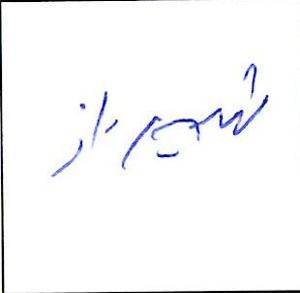 شیراز